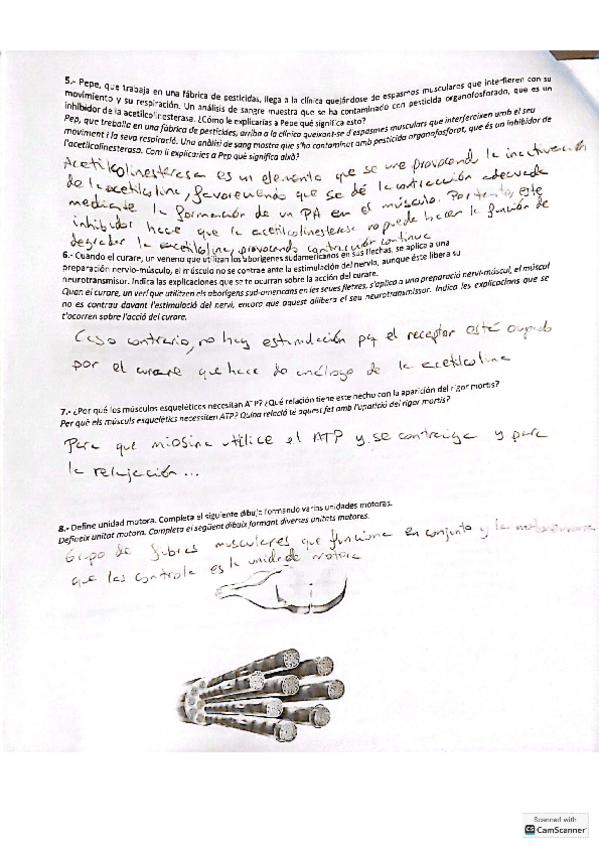 5.- Pepe, que trabaja en una fábrica de pesticidas, llega a la clínica quejándose de espasmos musculares que interfieren con su
movimiento y su respiración. Un análisis de sangre muestra que se ha contaminado con pesticida organofosforado, que es un
inhibidor de la acetilcolinesterasa. ¿Cómo le explicarías a Pepe qué significa esto?
Pep, que treballa en una fàbrica de pesticides, arriba a la clínica queixant-se d'espasmes musculars que interfereixen amb el seu
moviment i la seva respiració. Una anàlisi de sang mostra que s'ha contaminat amb pesticida organofosforat, que és un inhibidor de
l'acetilcolinesterasa. Com li explicaries a Pep què significa això?
Acetilcolinesterasa es un elemento que se une provocando la inactivación
de la acetilcolina, favoreciendo que se dé la contracción adecuada
mediante la formación de un PA en el músculo. Por tanto, este
inhibidor hace que la acetilcolinesterasa no puede hacer la función de
degradar la acetilcolina, provocando contracción continua
6.- Cuando el curare, un veneno que utilizan los aborígenes sudamericanos en sus flechas, se aplica a una
preparación nervio-músculo, el músculo no se contrae ante la estimulación del nervio, aunque éste libera su
neurotransmisor. Indica las explicaciones que se te ocurran sobre la acción del curare.
Quan el curare, un verí que utilitzen els aborígens sud-americans en les seves fletxes, s'aplica a una preparació nervi-múscul, el múscul
no es contrau davant l'estimulació del nervi, encara que aquest allibera el seu neurotransmissor. Indica les explicacions que se
t'ocorren sobre l'acció del curare.
Caso contrario, no hay estimulación pq el receptor está ocupado
por el curare que hace de análogo de la acetilcolina
7.- ¿Por qué los músculos esqueléticos necesitan ATP? ¿Qué relación tiene este hecho con la aparición del rigor mortis?
Per què els músculs esquelètics necessiten ATP? Quina relació té aquest fet amb l'aparició del rigor mortis?
Para que miosina utilice el ATP y se contraiga y para
la relajación...
8.- Define unidad motora. Completa el siguiente dibujo formando varias unidades motoras.
Defineix unitat motora. Completa el següent dibuix formant diverses unitats motores.
Grupo de fibras musculares que funciona en conjunto y la motoneurona
que las controla es la unidad motora
Scanned with
CS CamScanner